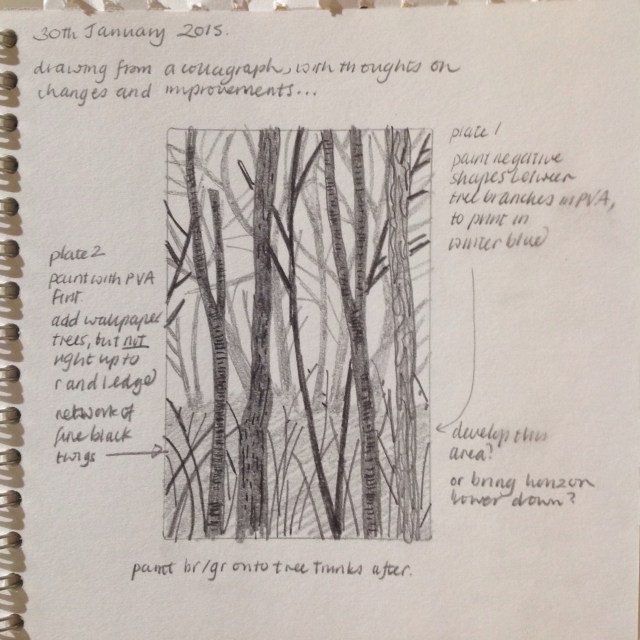 30th January 2015.
drawing from a collagraph, with thoughts on
changes and improvements...
plate 1
paint negative
shapes between
tree branches in PVA,
to print in
winter blue
plate 2
paint with PVA
first
add wallpaper
trees, but not
right up to
r and l edge
network of
fine black
twigs
develop this
area?
or bring horizon
lower down?
paint br/gr onto tree trunks after.